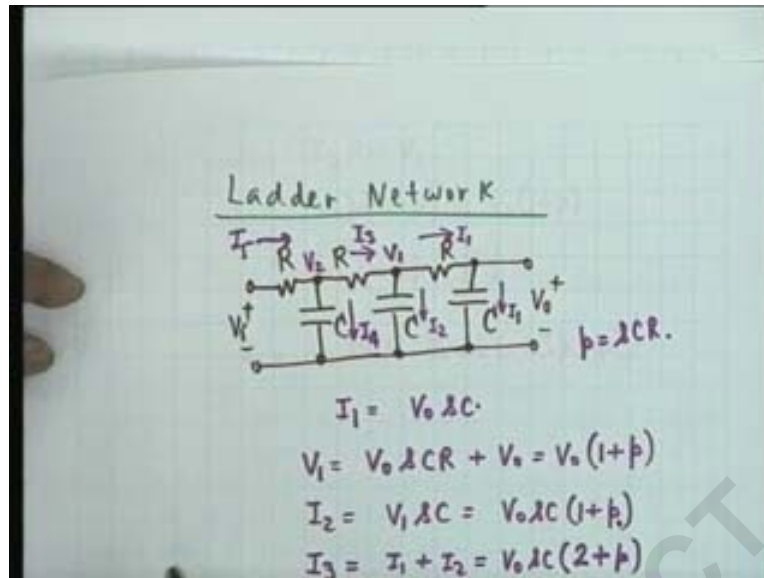 Ladder Network
I5 → I3 → → I1
R V2 R V1 R
Vi + - C ↓I4 C ↓I2 C ↓I1 V0 + -
p = sCR.
I1 = V0 sC.
V1 = V0 sCR + V0 = V0 (1+p)
I2 = V1 sC = V0 sC (1+p)
I3 = I1 + I2 = V0 sC (2+p)
CT